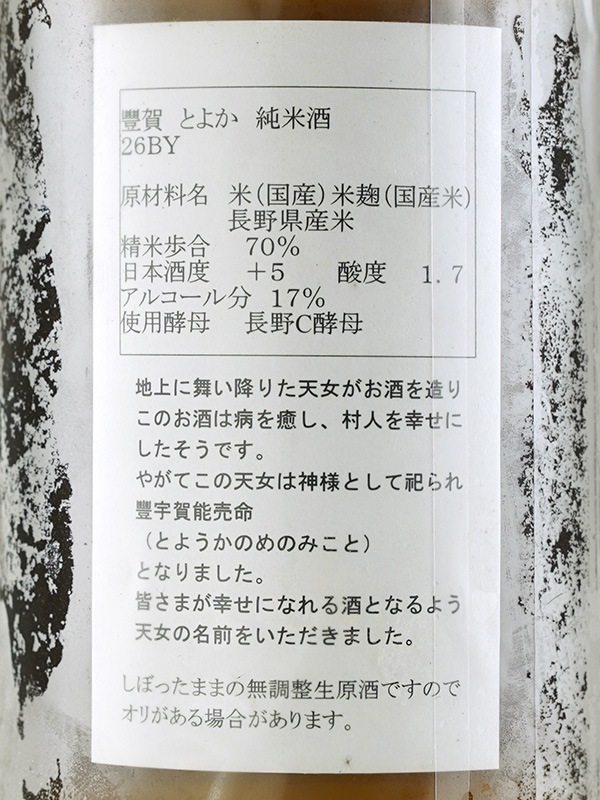 豐賀 とよか 純米酒
26BY
原材料名 米(国産)米麹(国産米)
長野県産米
精米歩合 70%
日本酒度 +5 酸度 1.7
アルコール分 17%
使用酵母 長野C酵母
地上に舞い降りた天女がお酒を造り
このお酒は病を癒し、村人を幸せに
したそうです。
やがてこの天女は神様として祀られ
豐宇賀能売命
(とようかのめのみこと)
となりました。
皆さまが幸せになれる酒となるよう
天女の名前をいただきました。
しぼったままの無調整生原酒ですので
オリがある場合があります。